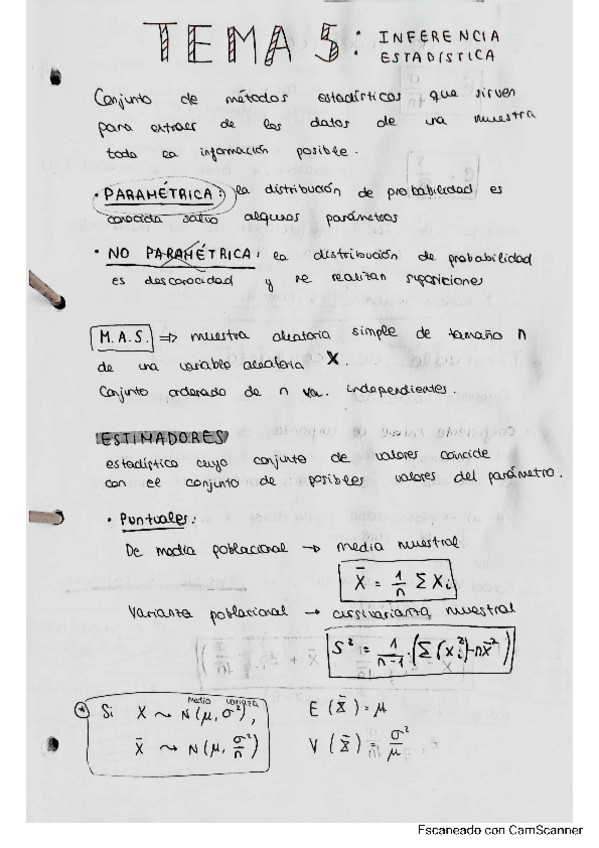 TEMA 5: INFERENCIA
ESTADÍSTICA
Conjunto de métodos estadísticos que sirven
para extraer de los datos de una muestra
toda la información posible.
• PARAMÉTRICA: la distribución de probabilidad es
conocida salvo algunos parámetros
• NO PARAMÉTRICA: la distribución de probabilidad
es descocacidad y se realizan suposiciones
M.A.S. => muestra aleatoria simple de tamaño n
de una variable aleatoria X.
Conjunto ordenado de n va. independientes.
ESTIMADORES
estadístico cuyo conjunto de valores coincide
con el conjunto de posibles valores del parámetro.
• Puntuales:
De media poblacional → media muestral
X̄ = 1/n Σ Xi
Varianza poblacional → cuasivarianza muestral
S² = 1/n-1 · (Σ(xi²)-nx̄²)
* Si X ~ N(μ, σ²), media varianza E(X̄) = μ
X̄ ~ N(μ, σ²/n) V(X̄) = σ²/μ
Escaneado con CamScanner